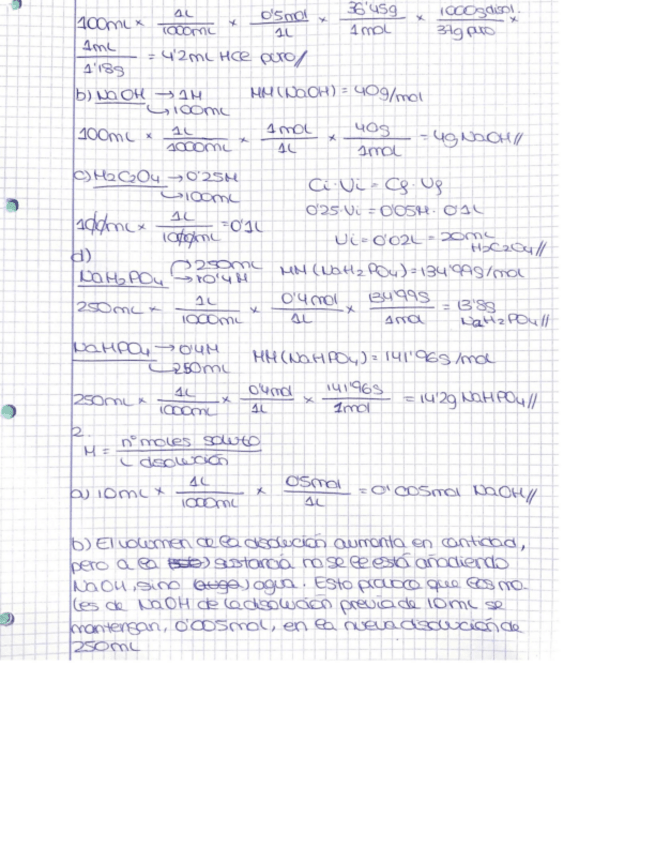 100mL × 1L/1000mL × 0'5mol/1L × 36'45g/1mol × 1000g disol./37g puro ×
1mL/1'18g = 4'2mL HCl puro//
b) NaOH → 1M MM(NaOH) = 40g/mol
↳ 100mL
100mL × 1L/1000mL × 1mol/1L × 40g/1mol = 4g NaOH//
c) H2C2O4 → 0'25M Ci·Vi = Cf·Vf
↳ 100mL 0'25·Vi = 0'05M·0'1L
100mL × 1L/1000mL = 0'1L Vi = 0'02L = 20mL H2C2O4//
d)
NaH2PO4 → 250mL → 0'4M MM(NaH2PO4) = 134'99g/mol
250mL × 1L/1000mL × 0'4mol/1L × 134'99g/1mol = 13'8g NaH2PO4//
NaHPO4 → 0'4M MM(NaHPO4) = 141'96g/mol
↳ 250mL
250mL × 1L/1000mL × 0'4mol/1L × 141'96g/1mol = 14'2g NaHPO4//
2.
M = nº moles soluto/L disolución
a) 10mL × 1L/1000mL × 0'5mol/1L = 0'005mol NaOH//
b) El volumen de la disolución aumenta en cantidad,
pero a la sustancia no se le está añadiendo
NaOH, sino agua. Esto provoca que los mo-
les de NaOH de la disolución previa de 10mL se
mantengan, 0'005mol, en la nueva disolución de
250mL